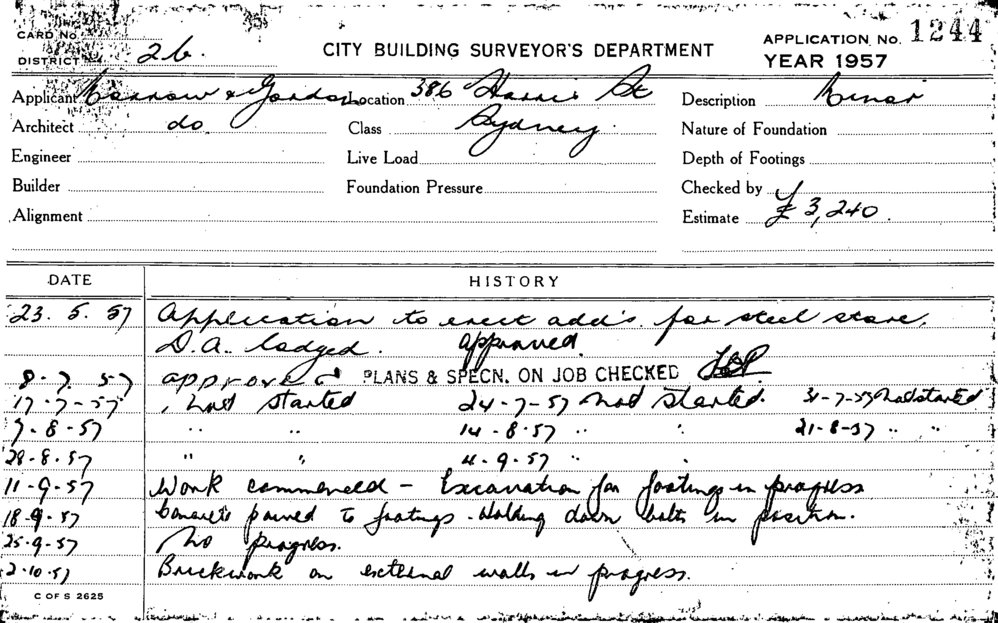 CARD No.
CITY BUILDING SURVEYOR'S DEPARTMENT
APPLICATION No. 1244
DISTRICT 26.
YEAR 1957
Applicant & Gordon Location 386 Harris St Description Minor
Architect do Class Sydney. Nature of Foundation
Engineer Live Load Depth of Footings
Builder Foundation Pressure Checked by
Alignment Estimate £3,240.
DATE HISTORY
23. 5. 57 Application to erect add's. for steel store.
D.A. lodged. approved
8-7. 57 approved PLANS & SPECN. ON JOB CHECKED
17-7-57 Not started 24-7-57 Not started. 31-7-57 Not started
7-8-57 " " 14-8-57 " " 21-8-57 " "
28-8-57 " " 4-9-57 "
11-9-57 Work commenced - Excavation for footings in progress
18-9-57 Concrete poured to footings. Holding down bolts in position.
25-9-57 No progress.
2-10-57 Brickwork on external walls in progress.
C OF S 2625